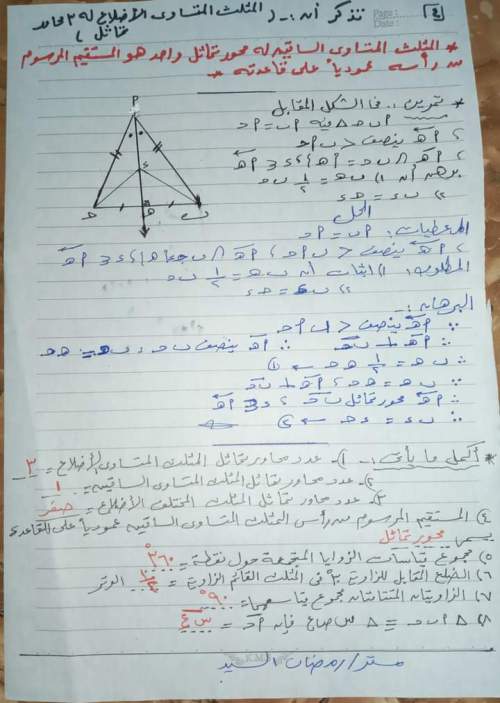 [٤] تذكر أن :- ( المثلث المتساوى الأضلاع له ٣ محاور تماثل )
* المثلث المتساوى الساقين له محور تماثل واحد هو المستقيم المرسوم
من رأسه عموديا على قاعدته *
* تمرين :. فى الشكل المقابل
٢ب = ٢ح
٢هـ ينصف < ب٢ح
برهن أن ١) ب هـ = ١/٢ ب ح
٢) ب ء = ح ء
الحل
المعطيات : ٢ب = ٢ح
المطلوب : ١) اثبات أن ب هـ = ١/٢ ب ح
٢) ب ء = ح ء
البرهان :-
∵ ٢هـ ينصف < ب٢ح
∴ ٢هـ ⊥ ب ح ∴ ٢هـ ينصف ب ح ، ب هـ = هـ ح
∵ ب هـ = هـ ح ، ٢هـ ⊥ ب ح
∴ ٢هـ محور تماثل ب ح ، ء ∈ ٢هـ
∴ ب ء = ء ح ← ②
* أكمل ما يأتى :- ١- عدد محاور تماثل المثلث المتساوى الأضلاع = ٣
٢- عدد محاور تماثل المثلث المتساوى الساقين = ١
٣- عدد محاور تماثل المثلث المختلف الأضلاع = صفر
٤) المستقيم المرسوم من رأس المثلث المتساوى الساقين عموديا على القاعدة
يسمى محور تماثل
٥) مجموع قياسات الزوايا المتجمعة حول نقطة = ٣٦٠°
٦) الضلع المقابل للزاوية ٣٠° فى المثلث القائم الزاوية = ١/٢ الوتر
٧) الزاويتان المتتامتان مجموع قياسهما = ٩٠°
٨) △ ٢ب ح ≡ △ س ص ع فإن ٢ح = س ع
مستر / رمضان السيد